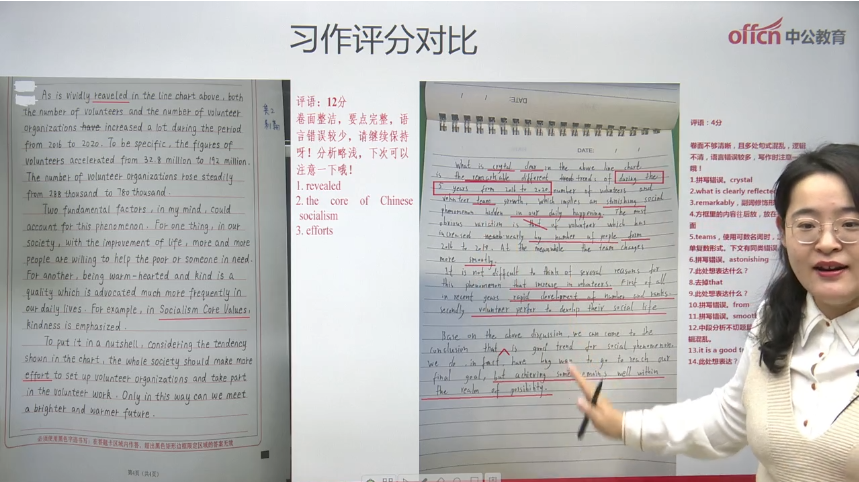 习作评分对比
offcn 中公教育
As is vividly reaveled in the line chart above, both
the number of volunteers and the number of volunteer
organizations have increased a lot during the period
from 2016 to 2020. To be specific, the figures of
volunteers accelerated from 32.8 million to 192 million.
The number of volunteer organizations rose steadily
from 288 thousand to 780 thousand.
Two fundamental factors, in my mind, could
account for this phenomenon. For one thing, in our
society, with the improvement of life, more and more
people are willing to help the poor or someone in need.
For another, being warm-hearted and kind is a
quality which is advocated much more frequently in
our daily lives. For example, in Socialism Core Values,
kindness is emphasized.
To put it in a nutshell, considering the tendency
shown in the chart, the whole society should make more
effort to set up volunteer organizations and take part
in the volunteer work. Only in this way can we meet
a brighter and warmer future.
评语:12分
卷面整洁,要点完整,语
言错误较少,请继续保持
呀!分析略浅,下次可以
注意一下哦!
1. revealed
2. the core of Chinese
socialism
3. efforts
DATE:
What is crystal clear in the above line chart
is the remarkable different trends of during the
5 years from 2016 to 2020 number of volunteers and
volunteer teams growth, which implies an
phenomenon hidden in our daily happening. The most
obvious variation is that of volunteers which has
increased by number of people form
2016 to 2019. At the meanwhile the team changes
more
It is not difficult to think of several reasons for
this phenomenon that increase in volunteers. First of all
in recent years rapid development of number and
secondly volunteer perfer to develop their social life
Base on the above discussion, we can come to the
conclusion that is good trend for social phenomenon.
We do in fact have long way to go to reach our
final goal, but achieving some remains well within
the realm of possibility.
评语:4分
卷面不够清晰,且多处句式混乱,逻辑
不清,语言错误较多,写作时注意一
1.拼写错误,crystal
2.what is clearly reflected
3.remarkably,副词修饰形
4.方框里的内容往后放,放在
面
5.teams,使用可数名词时,
单复数形式。下文有同类错误
6.拼写错误,astonishing
7.此处想表达什么?
8.去掉that
9.此处想表达什么?
10.拼写错误,from
11.拼写错误,smooth
12.中段分析不切题
辑混乱。
13.it is a good t
14.此处想表达?